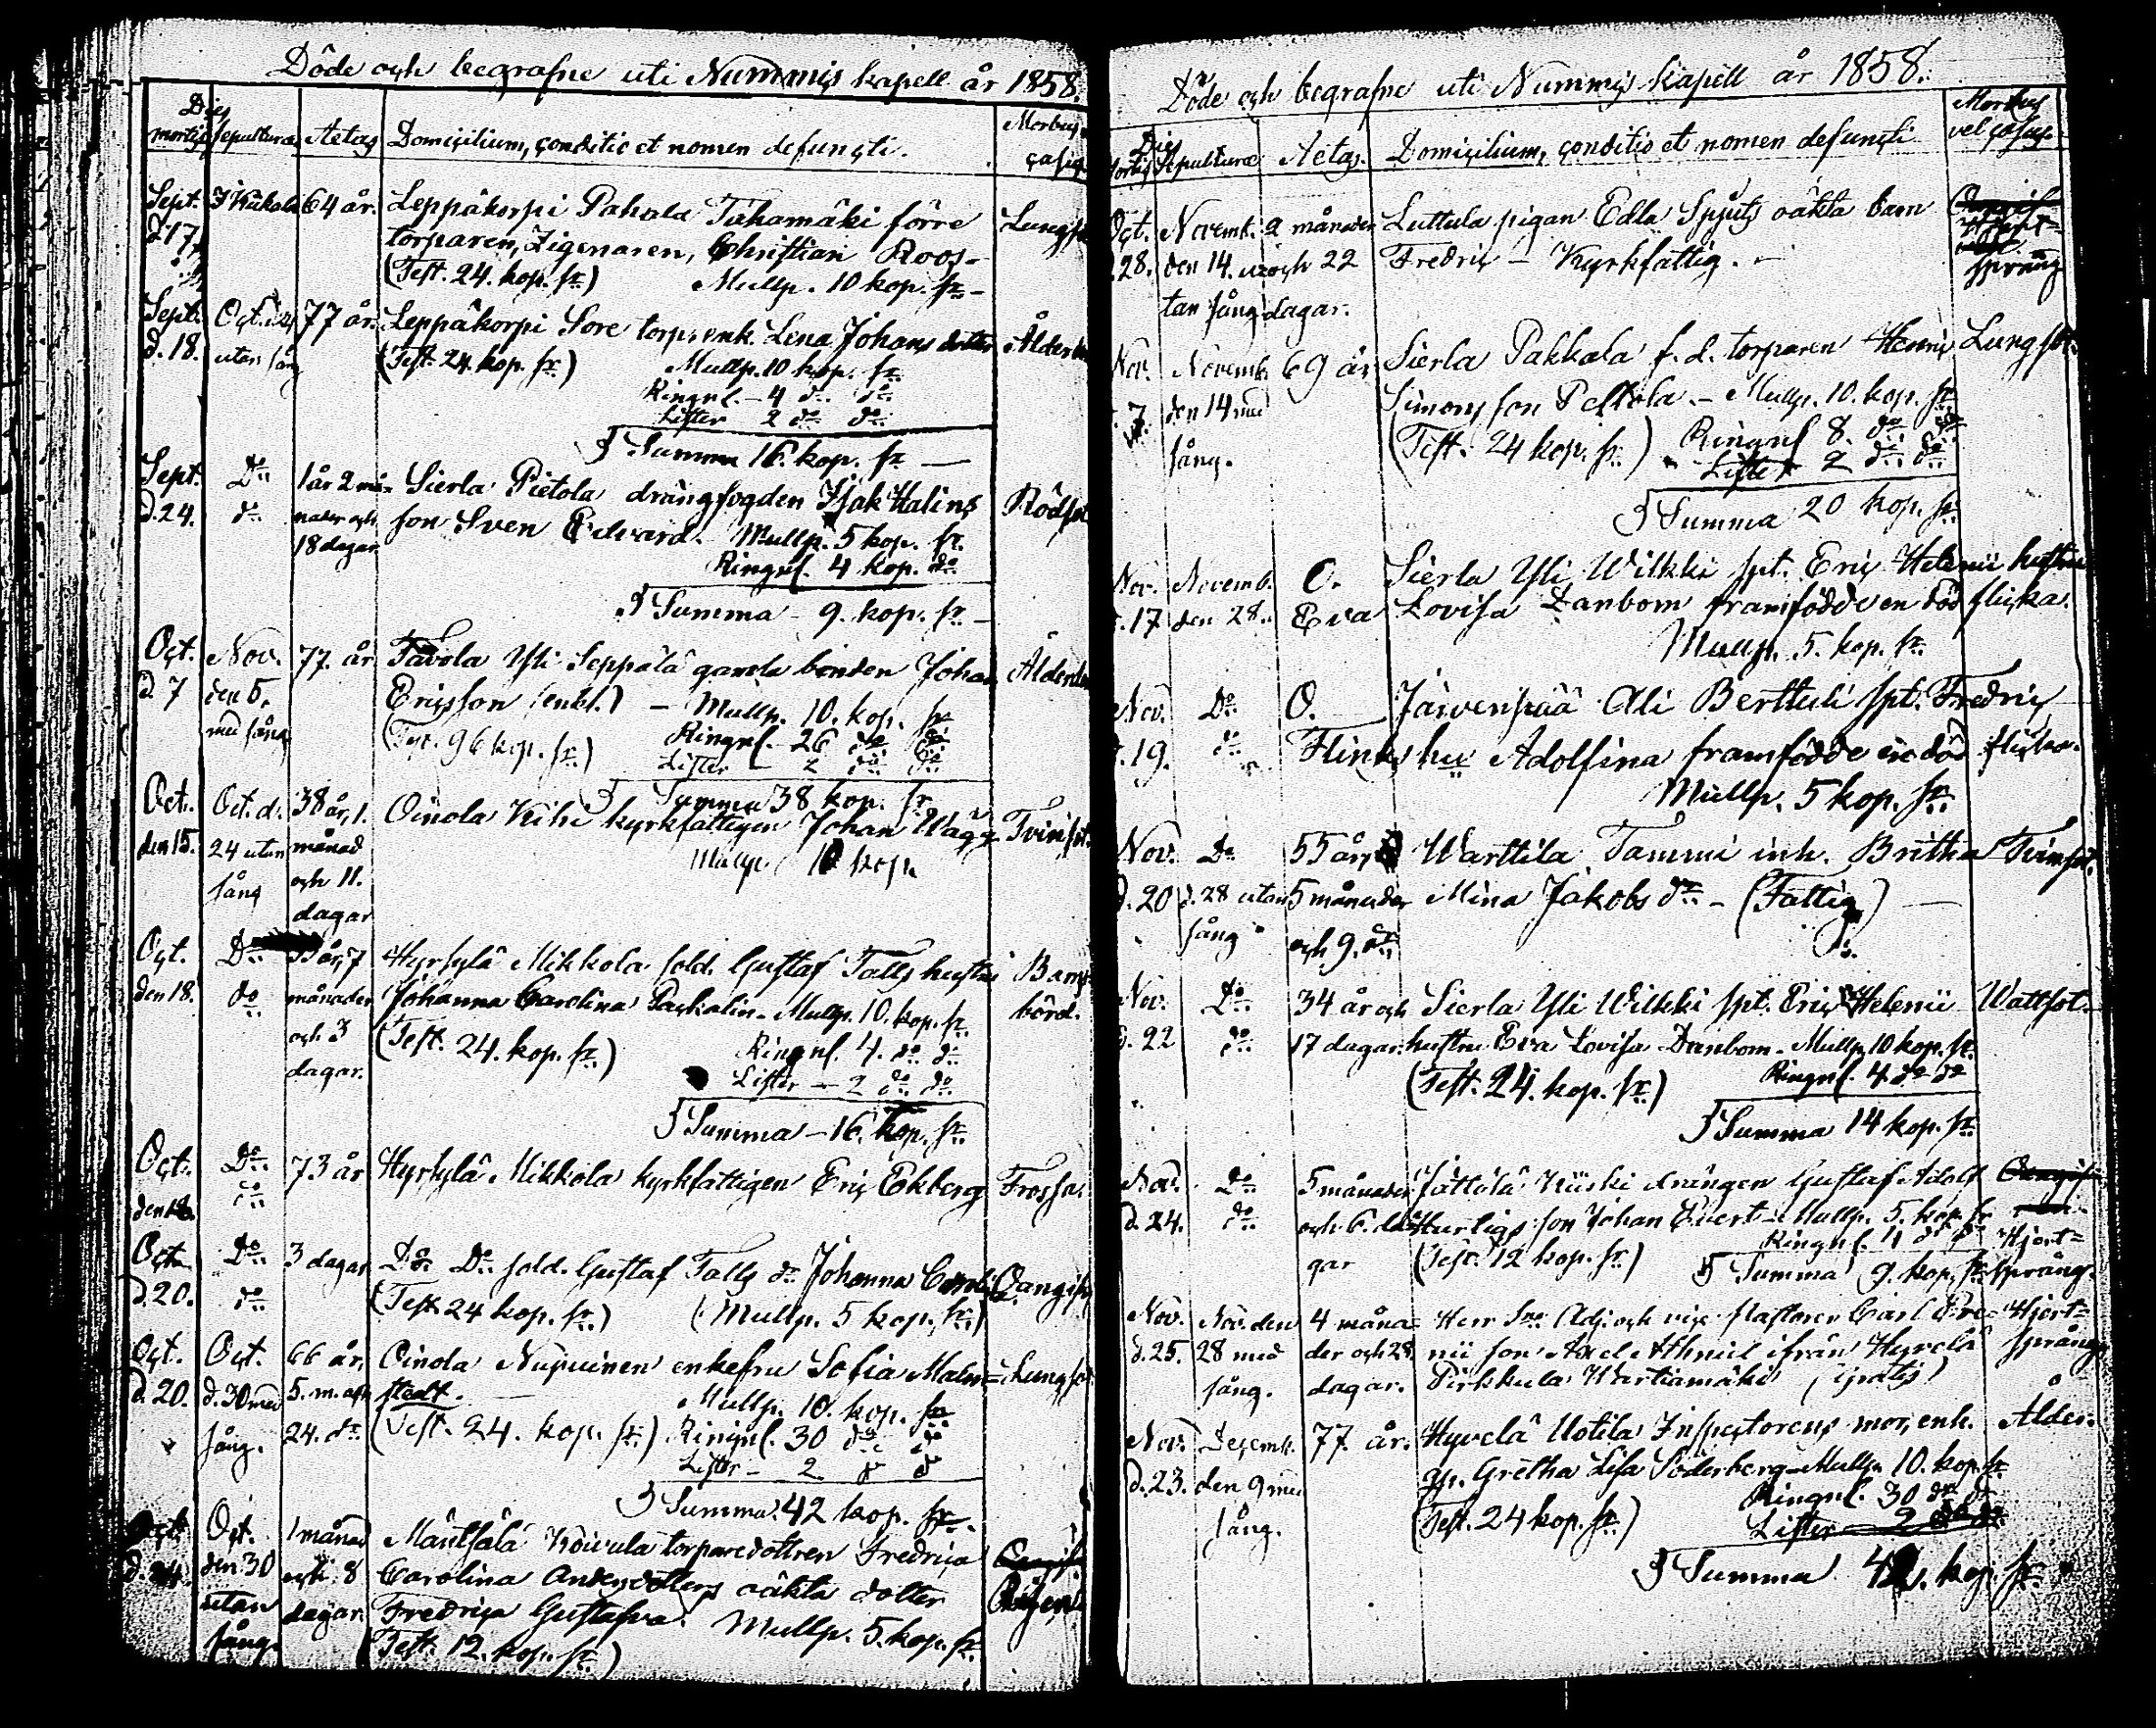 Döde och begrafne uti Nummis kapell år 1858.
Dies
mortis sepulturæ Aetas Domicilium, conditio et nomen defuncti. Morbus
casus
Sept. I Kiikala 64 år. Leppäkorpi Pahala Tuhamäki förre Lungs
d. 17. torparen, Zigenaren, Christian Roos.
(Test. 24. kop. sr.) Mullp. 10 kop. sr.
Sept. Oct. 77 år. Leppäkorpi Sore torp. enk. Lena Johans dotter Ålderdom
d. 18. utan sång (Test. 24. kop. sr.) Mullp. 10 kop. sr.
Ringnl. 4 do. do.
Lifter 2 do. do.
Summa 16. kop. sr.
Sept. Do. 1 år 2 må- Sierla Pietola drängfogden Isak Malins Rödsot
d. 24. do. nader och son Sven Edvard. Mullp. 5 kop. sr.
18 dagar Ringnl. 4 kop. do
Summa 9. kop. sr.
Oct. Nov. 77. år Tavola Yli Seppälä gamla bonden Johan Ålderdom
d. 7 den 5. Ericsson (enkl.) - Mullp. 10. kop. sr.
med sång (Test. 96 kop. sr.) Ringnl. 26 do do
Lifter 2 do. do.
Summa 38 kop. sr.
Oct. Oct. d. 38 år, 1. Oinola Kihi kyrkfattigen Johan Wagg Tvinsot.
den 15. 24 utan månad Mullp. 10 kop.
sång och 11.
dagar
Oct. Do. år, 7 Hyrsylä Mikkola sold. Gustaf Talls hustru Barns-
den 18. do månader Johanna Carolina Packalin. Mullp. 10. kop. sr. börd.
och 3 (Test. 24. kop. sr.) Ringnl. 4. do do.
dagar. Lifter - 2 do. do.
Summa - 16. kop. sr.
Oct. Do. 73 år Hyrsylä Mikkola kyrkfattigen Eric Ekberg Frossa.
den 18. do
Oct. Do. 3 dagar Do. Do. sold. Gustaf Talls dr. Johanna Carol. Okangifven
d. 20. do. (Test. 24 kop. sr.) (Mullp. 5 kop. sr.)
Oct. Oct. 66 år, Oinola Nupuinen enkefru Sofia Malm= Lungsot
d. 20. d. 30 med 5. m. och stedt. Mullp. 10. kop. sr.
sång. 24. dr. (Test. 24. kop. sr.) Ringnl. 30 do. do
Lifter - 2 do do
Summa. 42 kop. sr.
Oct. Oct. 1 månad Mäntsälä Koivula torparedottren Fredrica
d. 24. den 30 och 8 Carolina Andersdotters oäkta dotter
utan dagar. Fredrica Gustafva. Mullp. 5. kop. sr.
sång. (Test. 12. kop. sr.)
Döde och begrafne uti Nummis kapell år 1858.
Dies Morbus
mortis Sepulturæ Aetas. Domicilium, conditio et nomen defuncti vel casus
Oct. Novemb. 2 månader Luttula pigan Edla Spjuts oäkta barn
28. den 14. u= och 22 Fredric - Kyrkfattig. språng
tan sång dagar.
Nov. Novemb. 69 år Sierla Pakkala f. d. torparen Henric Lungsot.
7. den 14 med Simons son Peltola. - Mullp. 10. kop. sr.
sång. (Test. 24 kop. sr.) Ringnl 8. do do
Lifter 2 do. do
Summa 20 kop. sr.
Nov. Novemb. 0. Sierla Yli Wilkki spt. Eric Helenii hustru
17 den 28. Eva Lovisa Danbom framfödde en död flicka.
Mullp. 5. kop. sr.
Nov. Do. 0. Järvenpää Ali Berttuli spt. Fredric
19. do. Flinks hu Adolfina framfödde en död flicka.
Mullp. 5 kop. sr.
Nov. Do 55 år, Warttila Tammi inh. Britha Tvinsot.
d. 20 d. 28 utan 5 månader Mina Jakobs dr. - (Fattig)
sång och 9. dr.
Nov. Do. 34 år och Sierla Yli Wilkki spt. Eric Helenii Wattsot.
d. 22 do. 17 dagar. hustru Eva Lovisa Danbom. Mullp. 10 kop. sr.
(Test. 24. kop. sr.) Ringnl. 4 do do
Summa 14 kop. sr.
Nov. Do 5 månader Jättölä Kiiski drängen Gustaf Adolf
d. 24. do. och 6. da= Hurtigs son Johan Evert - Mullp. 5. kop. sr.
gar (Test. 12 kop. sr.) Ringnl. 4 do do Hjert=
Summa 9. kop. sr. språng.
Nov. Nov. den 4 måna= Herr Adj. och vice Pastoren Carl Hjert=
d. 25. 28 med der och 28 nii son Axel Athniel ifrån Hyvelä språng
sång. dagar. Pirkkula Wartiamäki (gratis)
Nov. Decemb. 77. år. Hyvelä Uotila Inspectorens mor, enk. Ålder.
d. 23. den 9 med gp. Gretha Lisa Söderberg Mullp. 10. kop. sr.
sång. (Test. 24 kop. sr.) Ringnl. 30 do do
Lifter 2 do do
Summa 42. kop. sr.